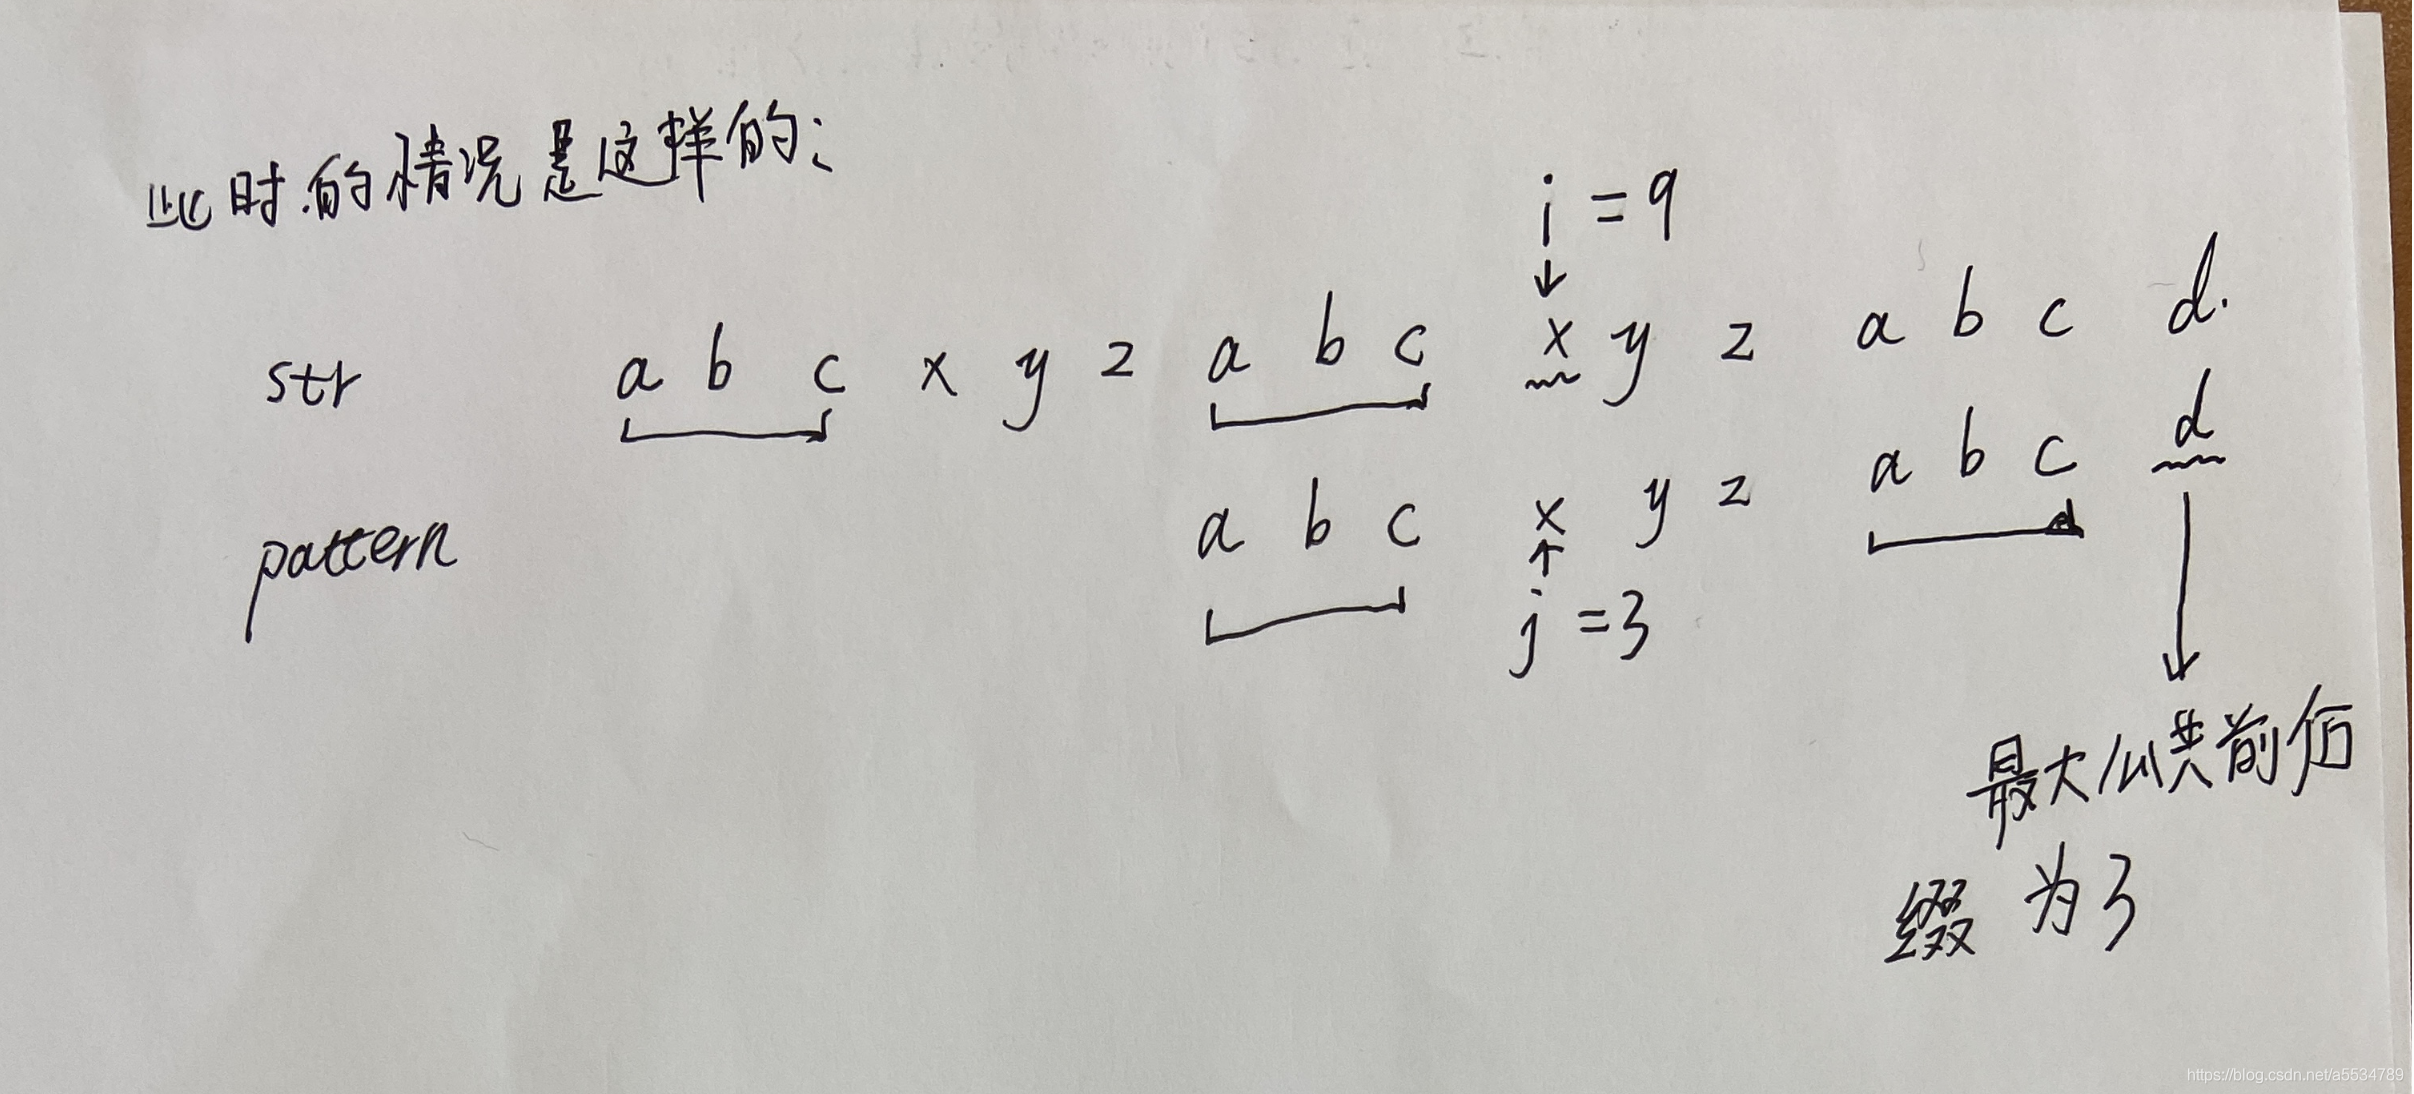 此时的情况是这样的：
i = 9
↓
str a b c x y z a b c x y z a b c d.
pattern a b c x y z a b c d
↑
j = 3
最大公共前后
缀 为3
https://blog.csdn.net/a5534789